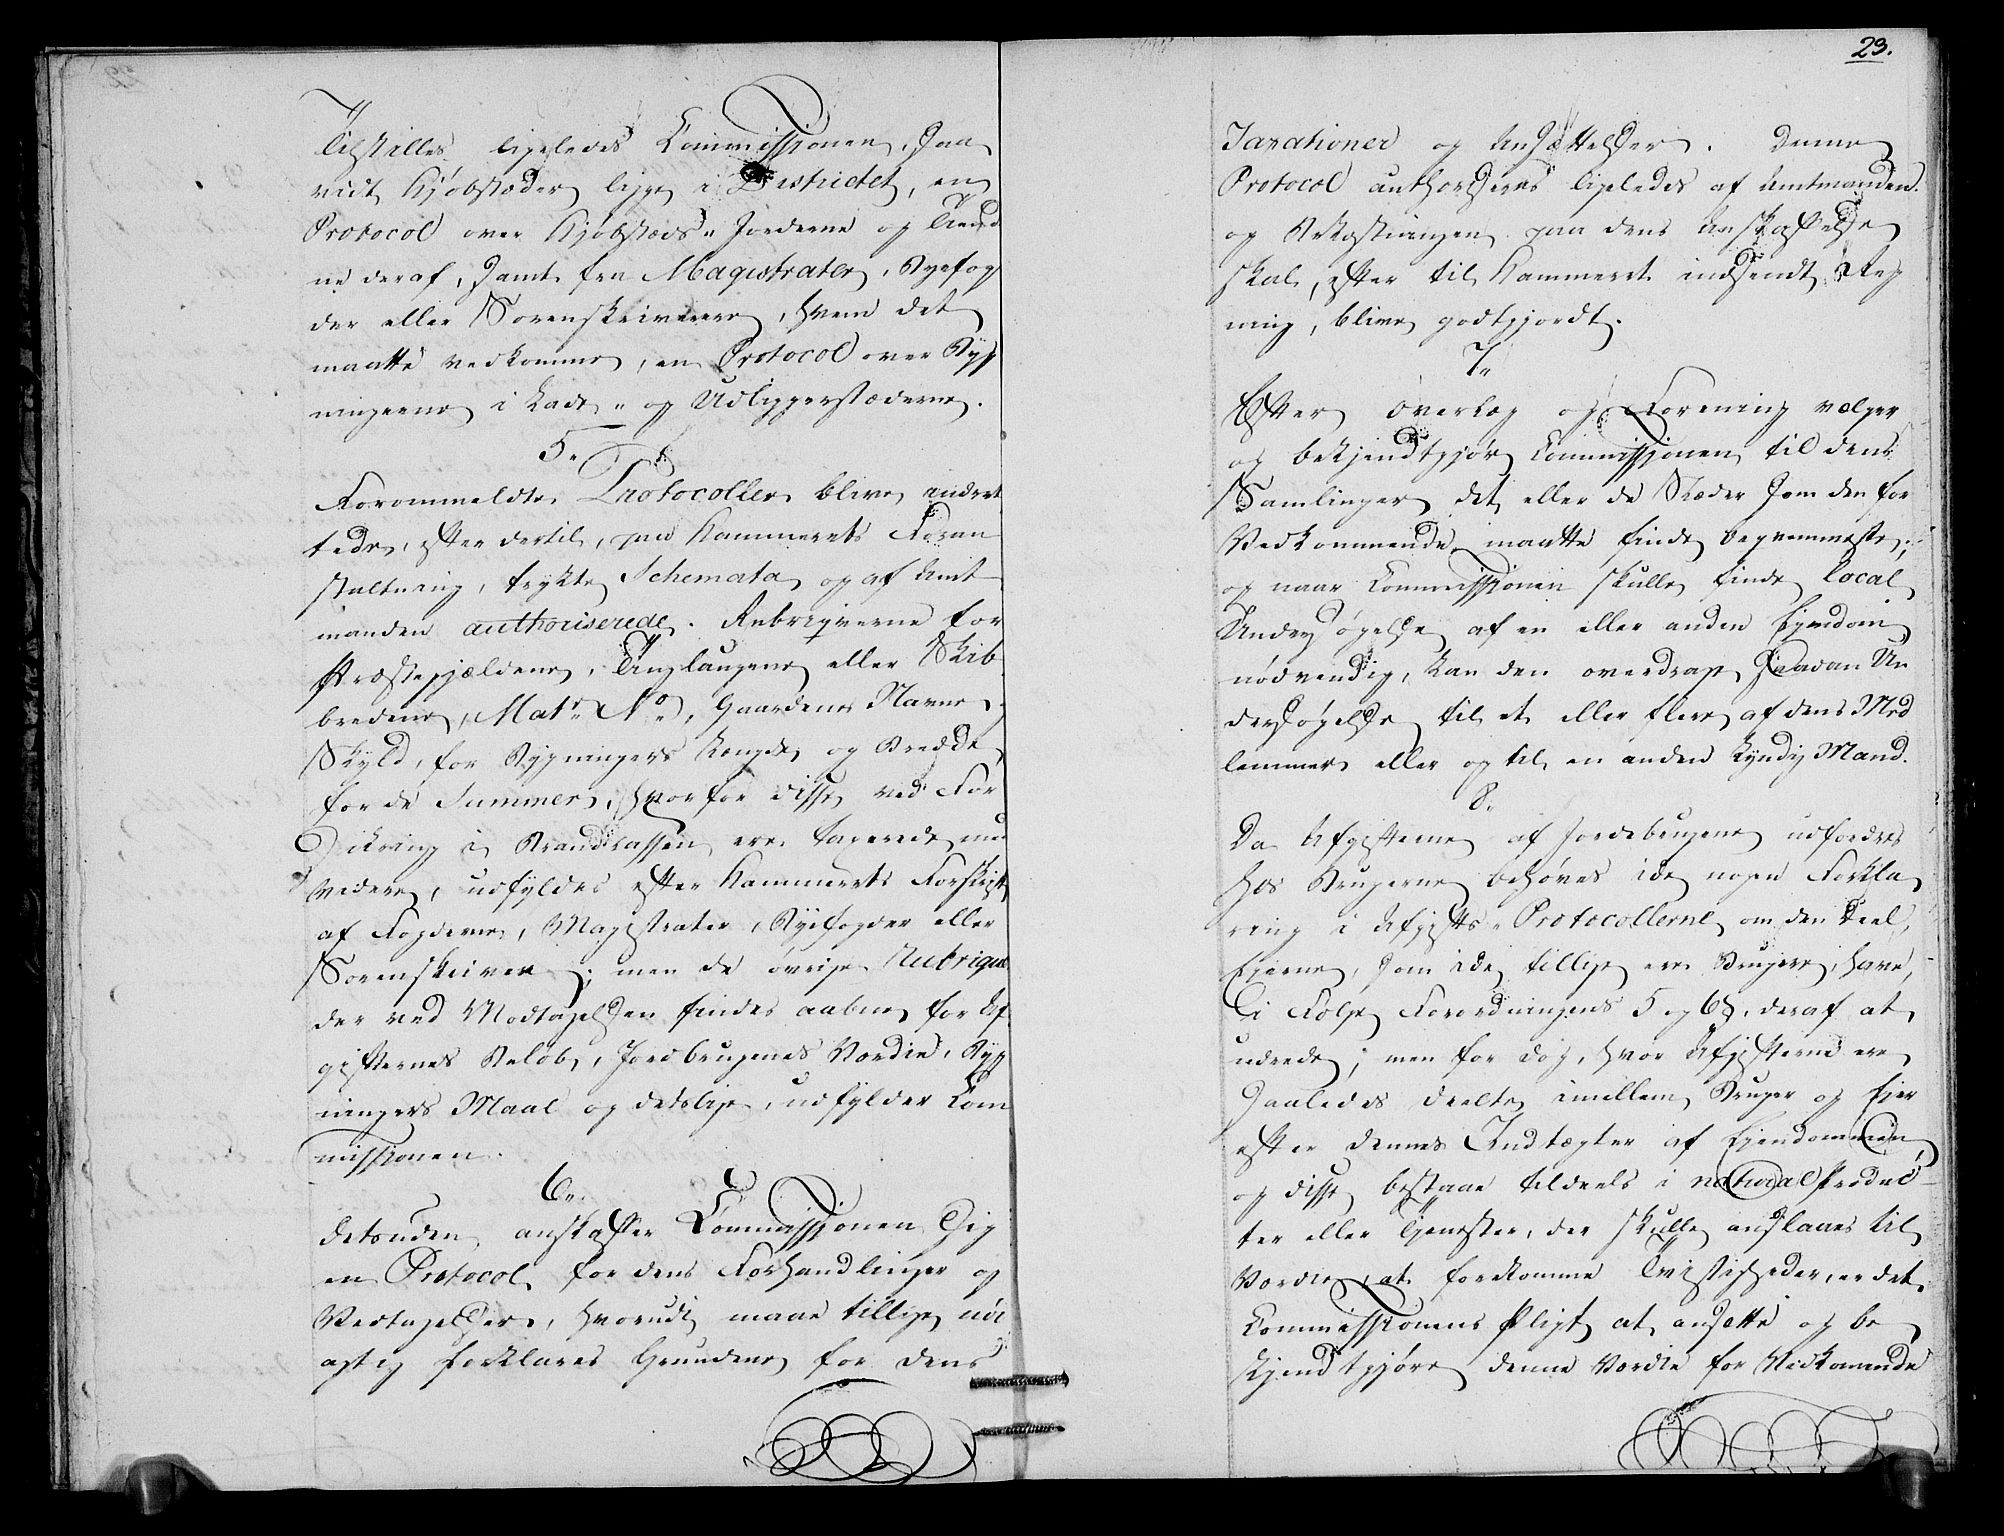 Tilstilles ligeledes Commissionen, saa
vidt Kjøbstæder ligge i Districtet, en
Protocol over Kjøbstæds-Jorderne og Tiend
ne deraf, samt fra Magistrater, Byefog
der eller Sorenskriverne, hvem det
maatte vedkomme, en Protocol over Byg
ningerne i Lade- og Udliggerstæderne.
5.
Forommeldte Protocoller blive indret
tede, efter dertil, paa Kammerets Foran
staltning, trykte Schemata og af Amt
manden authoriserede. Rubriqverne for
Præstegjældene, Tinglaugene eller Skib
rederne, Matr. No, Gaardenes Navne
Skyld, for Bygningers Længde og Bredde,
for de Summer, hvorfor disse ved For
sikring i Brandkassen ere taxerede med
videre, udfyldes efter Kammerets Forskrift
af Fogderne, Magistrater, Byefogder eller
Sorenskriver; men de øvrige Rubriqver
der ved Modtagelsen findes aabne for Af
gifternes Beløb, Jordbrugenes Værdie, Byg
ningers Maal og detslige, udfylder Com
missionen.
6.
Desuden anskaffer Commissionen sig
en Protocol for dens Forhandlinger og
Vedtagelser, hvorudi maae tillige nøi
agtig forklares Grundene for dens
23.
Taxationer og Ansættelser. Denne
Protocol authoriseres ligeledes af Amtmanden
og Bekostningen paa dens Anskaffelse
skal, efter til Kammeret indsendt Reg
ning, blive godtgjordt.
7.
Efter Overlæg og Forening vælger
og bekjendtgjør Commissionen til dens
Samlinger det eller de Stæder som den for
Vedkommende maatte finde beqvemmeste;
og naar Commissionen skulle finde local
Undersøgelse af en eller anden Ejendom
nødvendig, kan den overdrage saadan Un
dersøgelse til et eller flere af dens Med
lemmer eller og til en anden kyndig Mand.
8.
Da Afgifterne af Jordebrugene udfordres
hos Brugerne behøves ikke nogen Forkla
ring i Afgifts-Protocollerne om den Deel,
Ejerne, som ikke tillige ere Brugere, have,
i Følge Forordningens 5 og 6 §, deraf at
udrede; men for dog, hvor Afgifterne ere
saaledes deelte imellem Bruger og Ejer
efter dennes Indtægter af Ejendommen,
og disse bestaae tildeels i natural Produc
ter eller Tjenester, der skulle anslaaes til
Værdie, at forekomme Tvistigheder, er det
Commissionens Pligt at ansætte og be
kjendtgjøre denne Værdie for Vedkommende